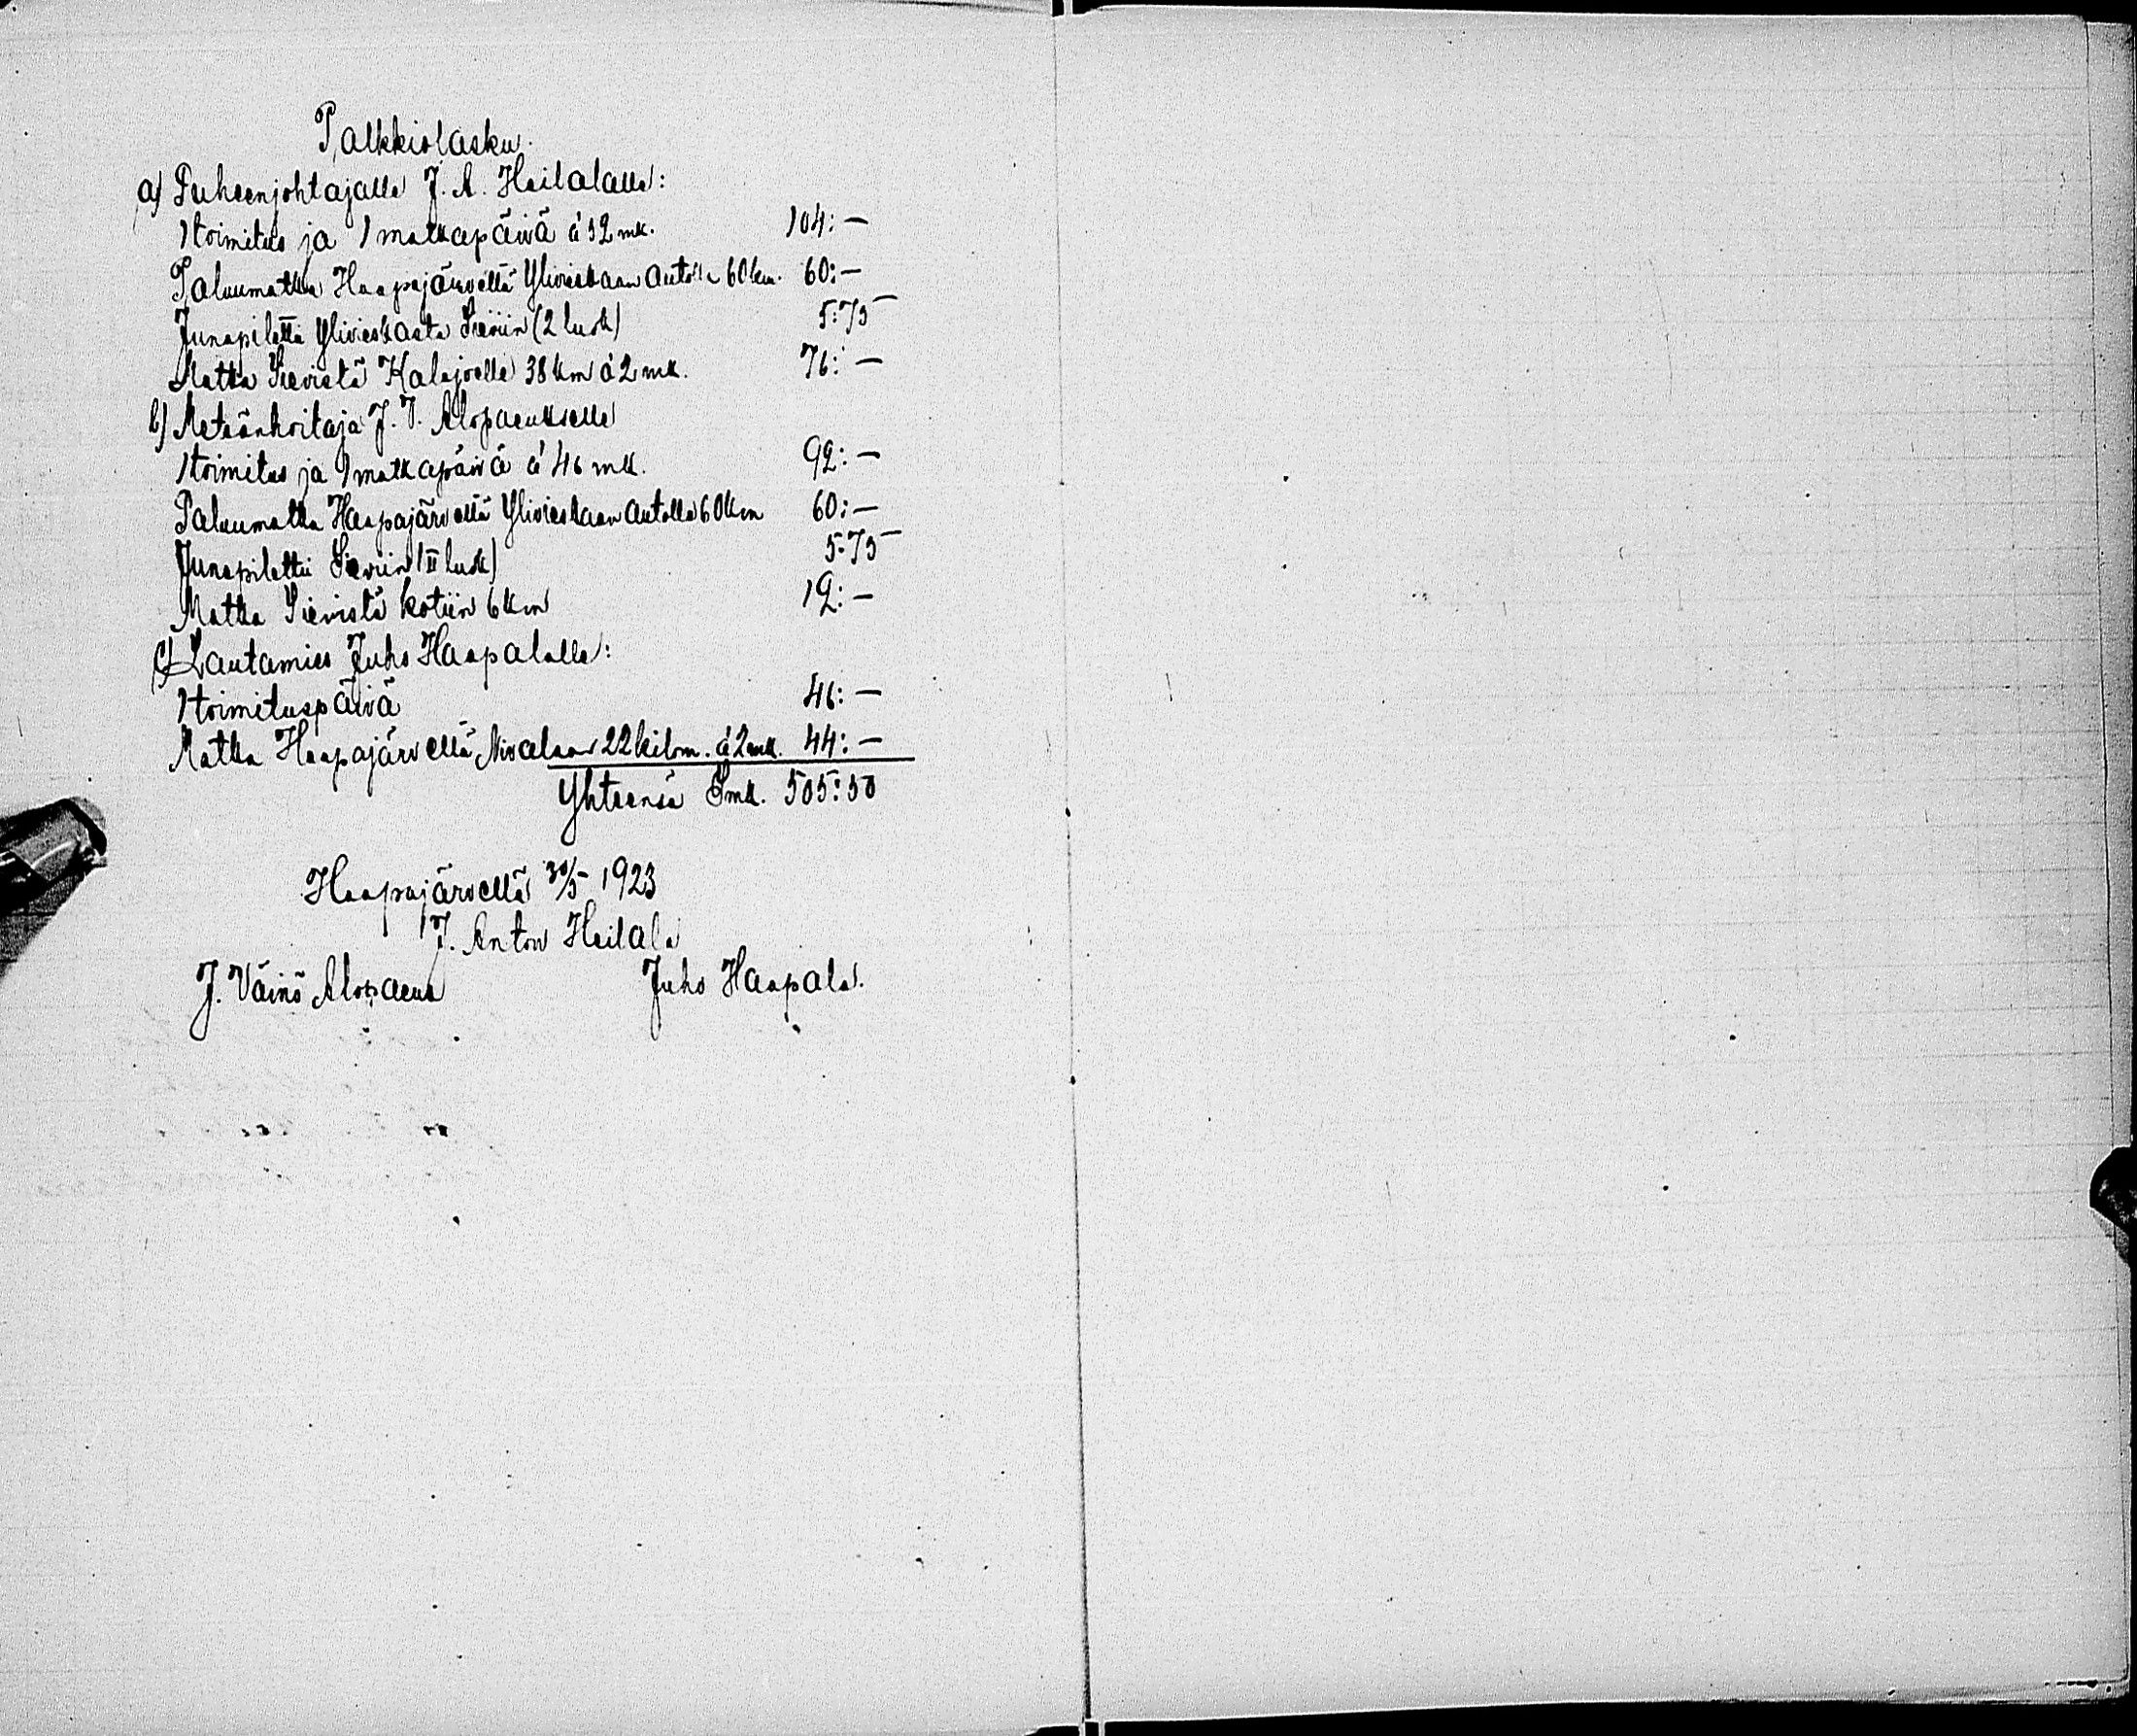 Palkkiolasku.
a) Puheenjohtajalle J. A. Heilalalle:
1 toimitus ja 1 matkapäivä á 52 mk. 104:—
Paluumatka Haapajärveltä Ylivieskaan autolla 60 km. 60:—
Junapiletti Ylivieskasta Sieviin (2 luok) 5:75
Matka Sievistä Kalajoelle 38 km á 2 mk. 76:—
b) Metsänhoitaja J. V. Alopaeukselle
1 toimitus ja 1 matkapäivä á 46 mk. 92:—
Paluumatka Haapajärveltä Ylivieskaan autolla 60 km 60:—
Junapiletti Sieviin (II luok) 5:75
Matka Sievistä kotiin 6 km 12:—
c) Lautamies Juho Haapalalle:
1 toimituspäivä 46:—
Matka Haapajärveltä Nivalaan 22 kilom. á 2 mk. 44:—
Yhteensä Smk. 505:50
Haapajärvellä 30/5 1923
J. Anton Heilala
J. Väinö Alopaeus Juho Haapala.